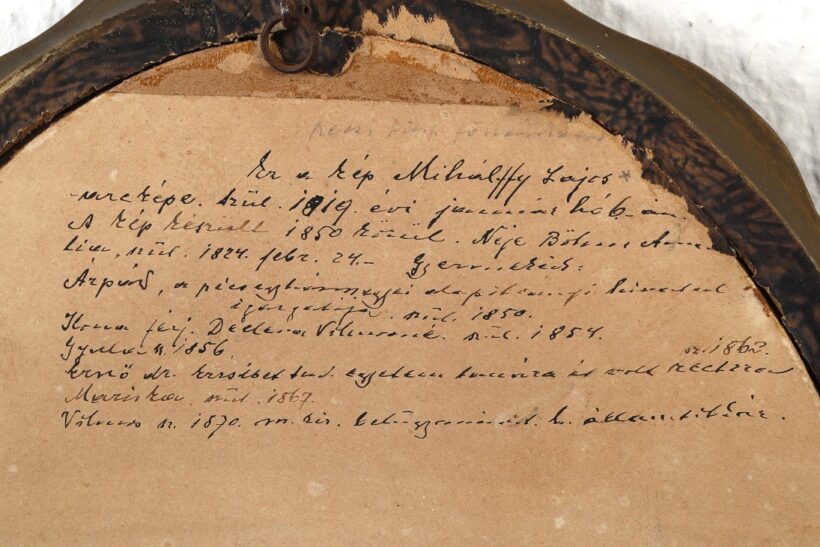 Ez a kép Mihálffy Lajos
arczképe. Szül. 1819. évi január hó 6-án.
A kép készült 1850 körül. Neje Böhm Ama-
lia, szül. 1824. febr. 24.– Gyermekei:
Árpád, a pécsegyházmegyei alapítványi hivatal
igazgatója. szül. 1850.
Ilona férj. Vilmosné. szül. 1854.
Gyula sz. 1856. sz. 1862.
Ernő dr. Erzsébet tud. egyetem tanára és volt rectora
Mariska, szül. 1867.
Vilmos sz. 1870. m. kir. belügyminist. h. államtitkár.